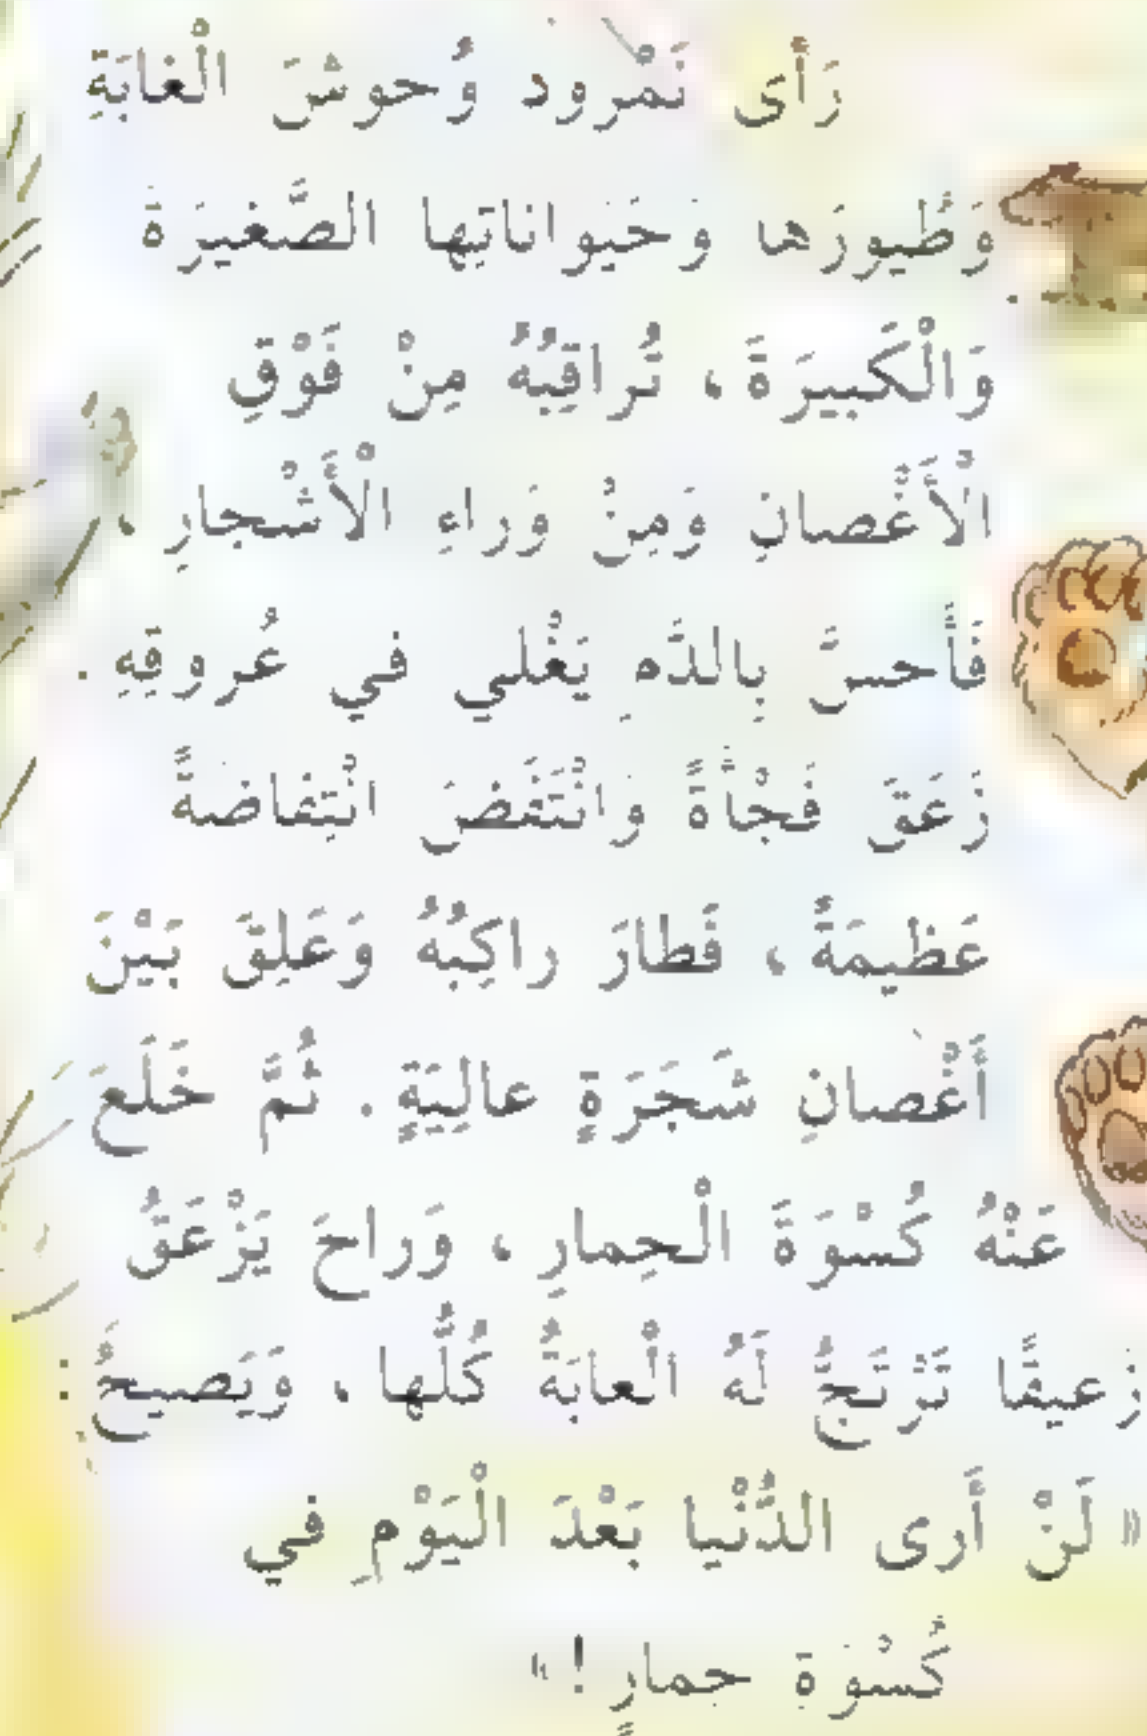 رَأى نَمْرود وُحوشَ الْغابَةِ
وَطُيورَها وَحَيَواناتِها الصَّغيرَةَ
وَالْكَبيرَةَ، تُراقِبُهُ مِنْ فَوْقِ
الْأَغْصانِ وَمِنْ وَراءِ الْأَشْجارِ،
فَأَحسَّ بِالدَّمِ يَغْلي في عُروقِهِ.
زَعَقَ فَجْأَةً وَانْتَفَضَ انْتِفاضَةً
عَظيمَةً، فَطارَ راكِبُهُ وَعَلِقَ بَيْنَ
أَغْصانِ شَجَرَةٍ عالِيَةٍ. ثُمَّ خَلَعَ
عَنْهُ كُسْوَةَ الْحِمارِ، وَراحَ يَزْعَقُ
زَعيقًا تَرْتَجُّ لَهُ الْغابَةُ كُلُّها، وَيَصيحُ:
«لَنْ أَرى الدُّنْيا بَعْدَ الْيَوْمِ في
كُسْوَةِ حِمارٍ!»